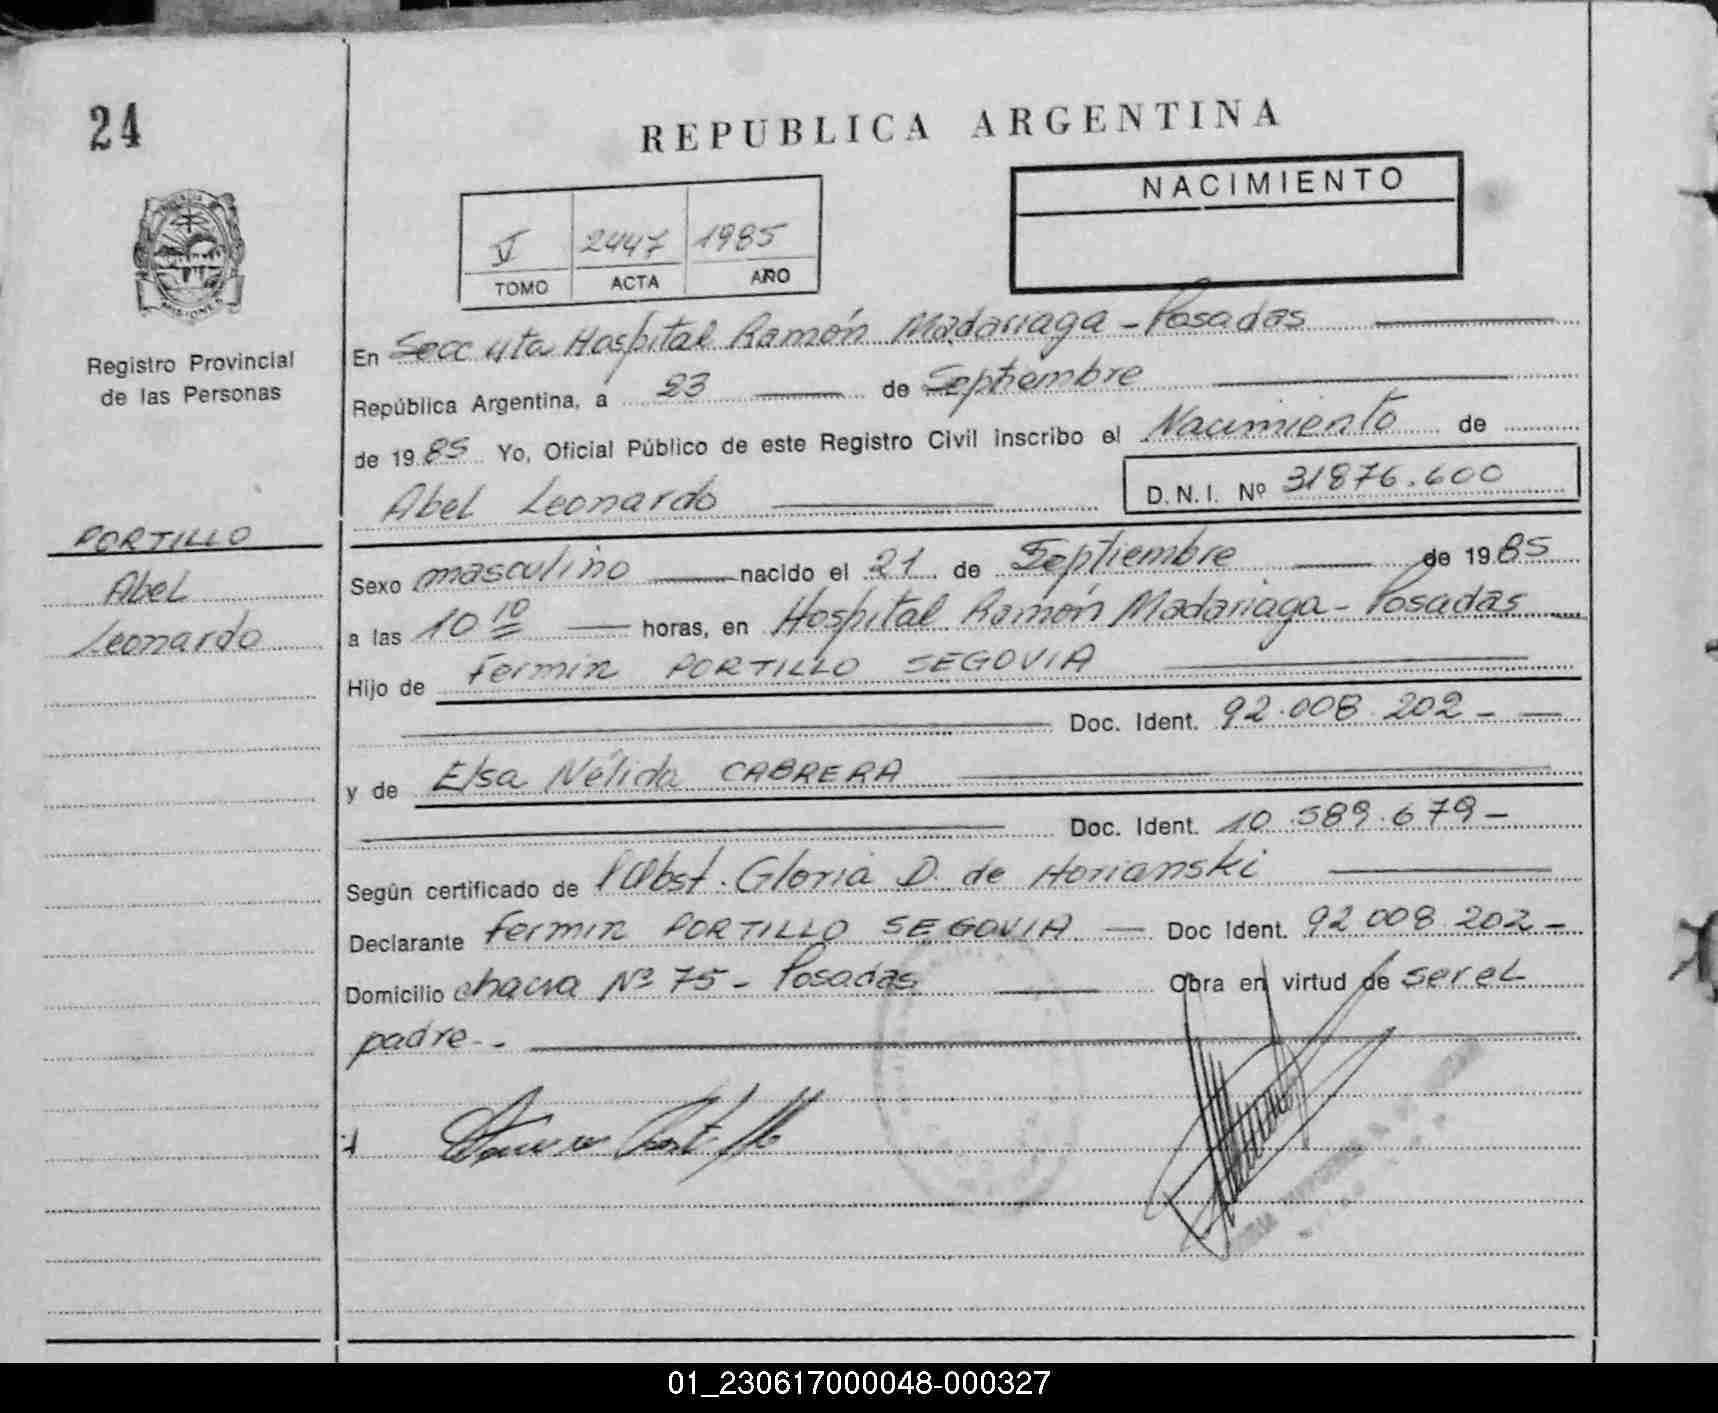 24
REPUBLICA ARGENTINA
NACIMIENTO
V 2447 1985
TOMO ACTA AÑO
Registro Provincial
de las Personas
En Secc 4ta Hospital Ramón Madariaga - Posadas
República Argentina, a 23 de Septiembre
de 1985 Yo, Oficial Público de este Registro Civil inscribo el Nacimiento de
Abel Leonardo D.N.I. Nº 31876.600
PORTILLO
Abel
Leonardo
Sexo masculino nacido el 21 de Septiembre de 1985
a las 10 10 horas, en Hospital Ramón Madariaga - Posadas
Hijo de Fermin PORTILLO SEGOVIA
Doc. Ident. 92.008.202 -
y de Elsa Nélida CABRERA
Doc. Ident. 10.589.679 -
Según certificado de Obst. Gloria D. de Horianski
Declarante Fermin PORTILLO SEGOVIA Doc Ident. 92.008.202 -
Domicilio chacra Nº 75 - Posadas Obra en virtud de ser el
padre - .
01_230617000048-000327